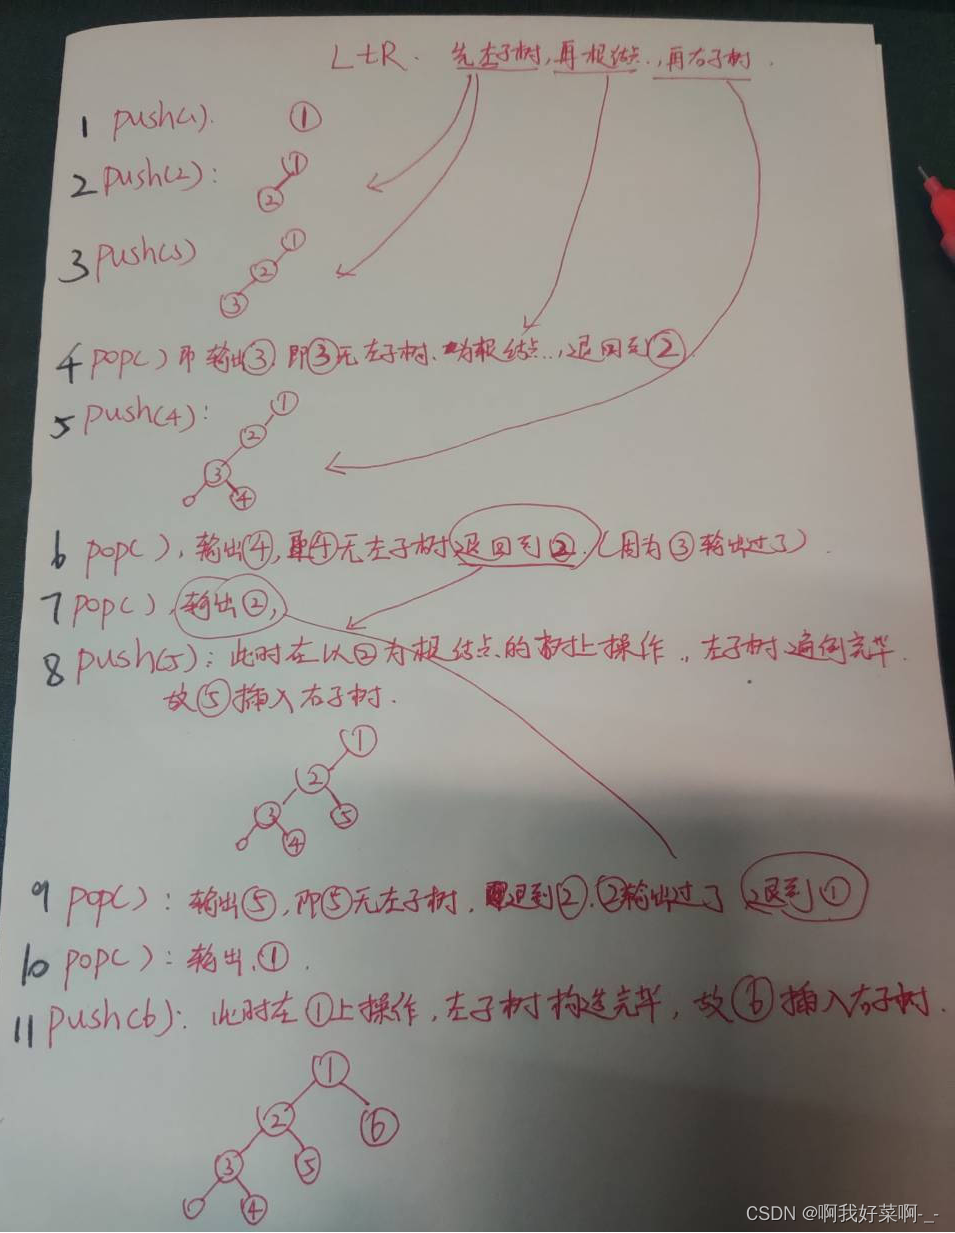 LtR. 先左子树,再根结点.,再右子树.
1 push(1). ①
2 push(2): ① ②
3 push(3) ① ② ③
4 pop() 即输出③,即③无左子树、为根结点..,退回到②
5 push(4): ① ② ③ ④
6 pop(),输出④,④无左子树退回到②.(因为③输出过了)
7 pop(),输出②,
8 push(5):此时在以②为根结点的树上操作,左子树遍例完毕.
故⑤插入右子树.
①
②
③ ⑤
④
9 pop():输出⑤,即⑤无左子树,退到②.②输出过了 退到①
10 pop():输出①.
11 push(6):此时在①上操作,左子树构造完毕,故⑥插入右子树.
①
② ⑥
③ ⑤
④
CSDN @啊我好菜啊-_-